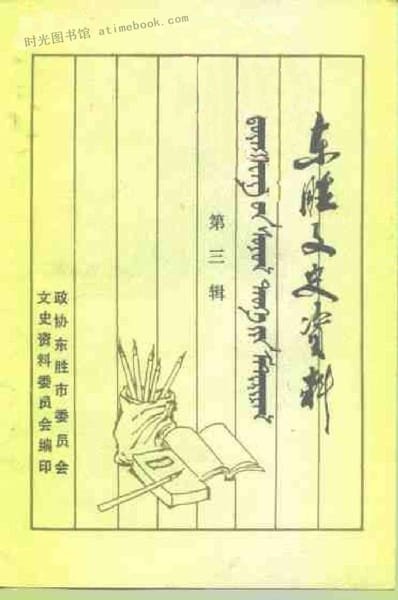 时光图书馆 atimebook.com
东胜文史资料
第三辑
政协东胜市委员会
文史资料委员会编印